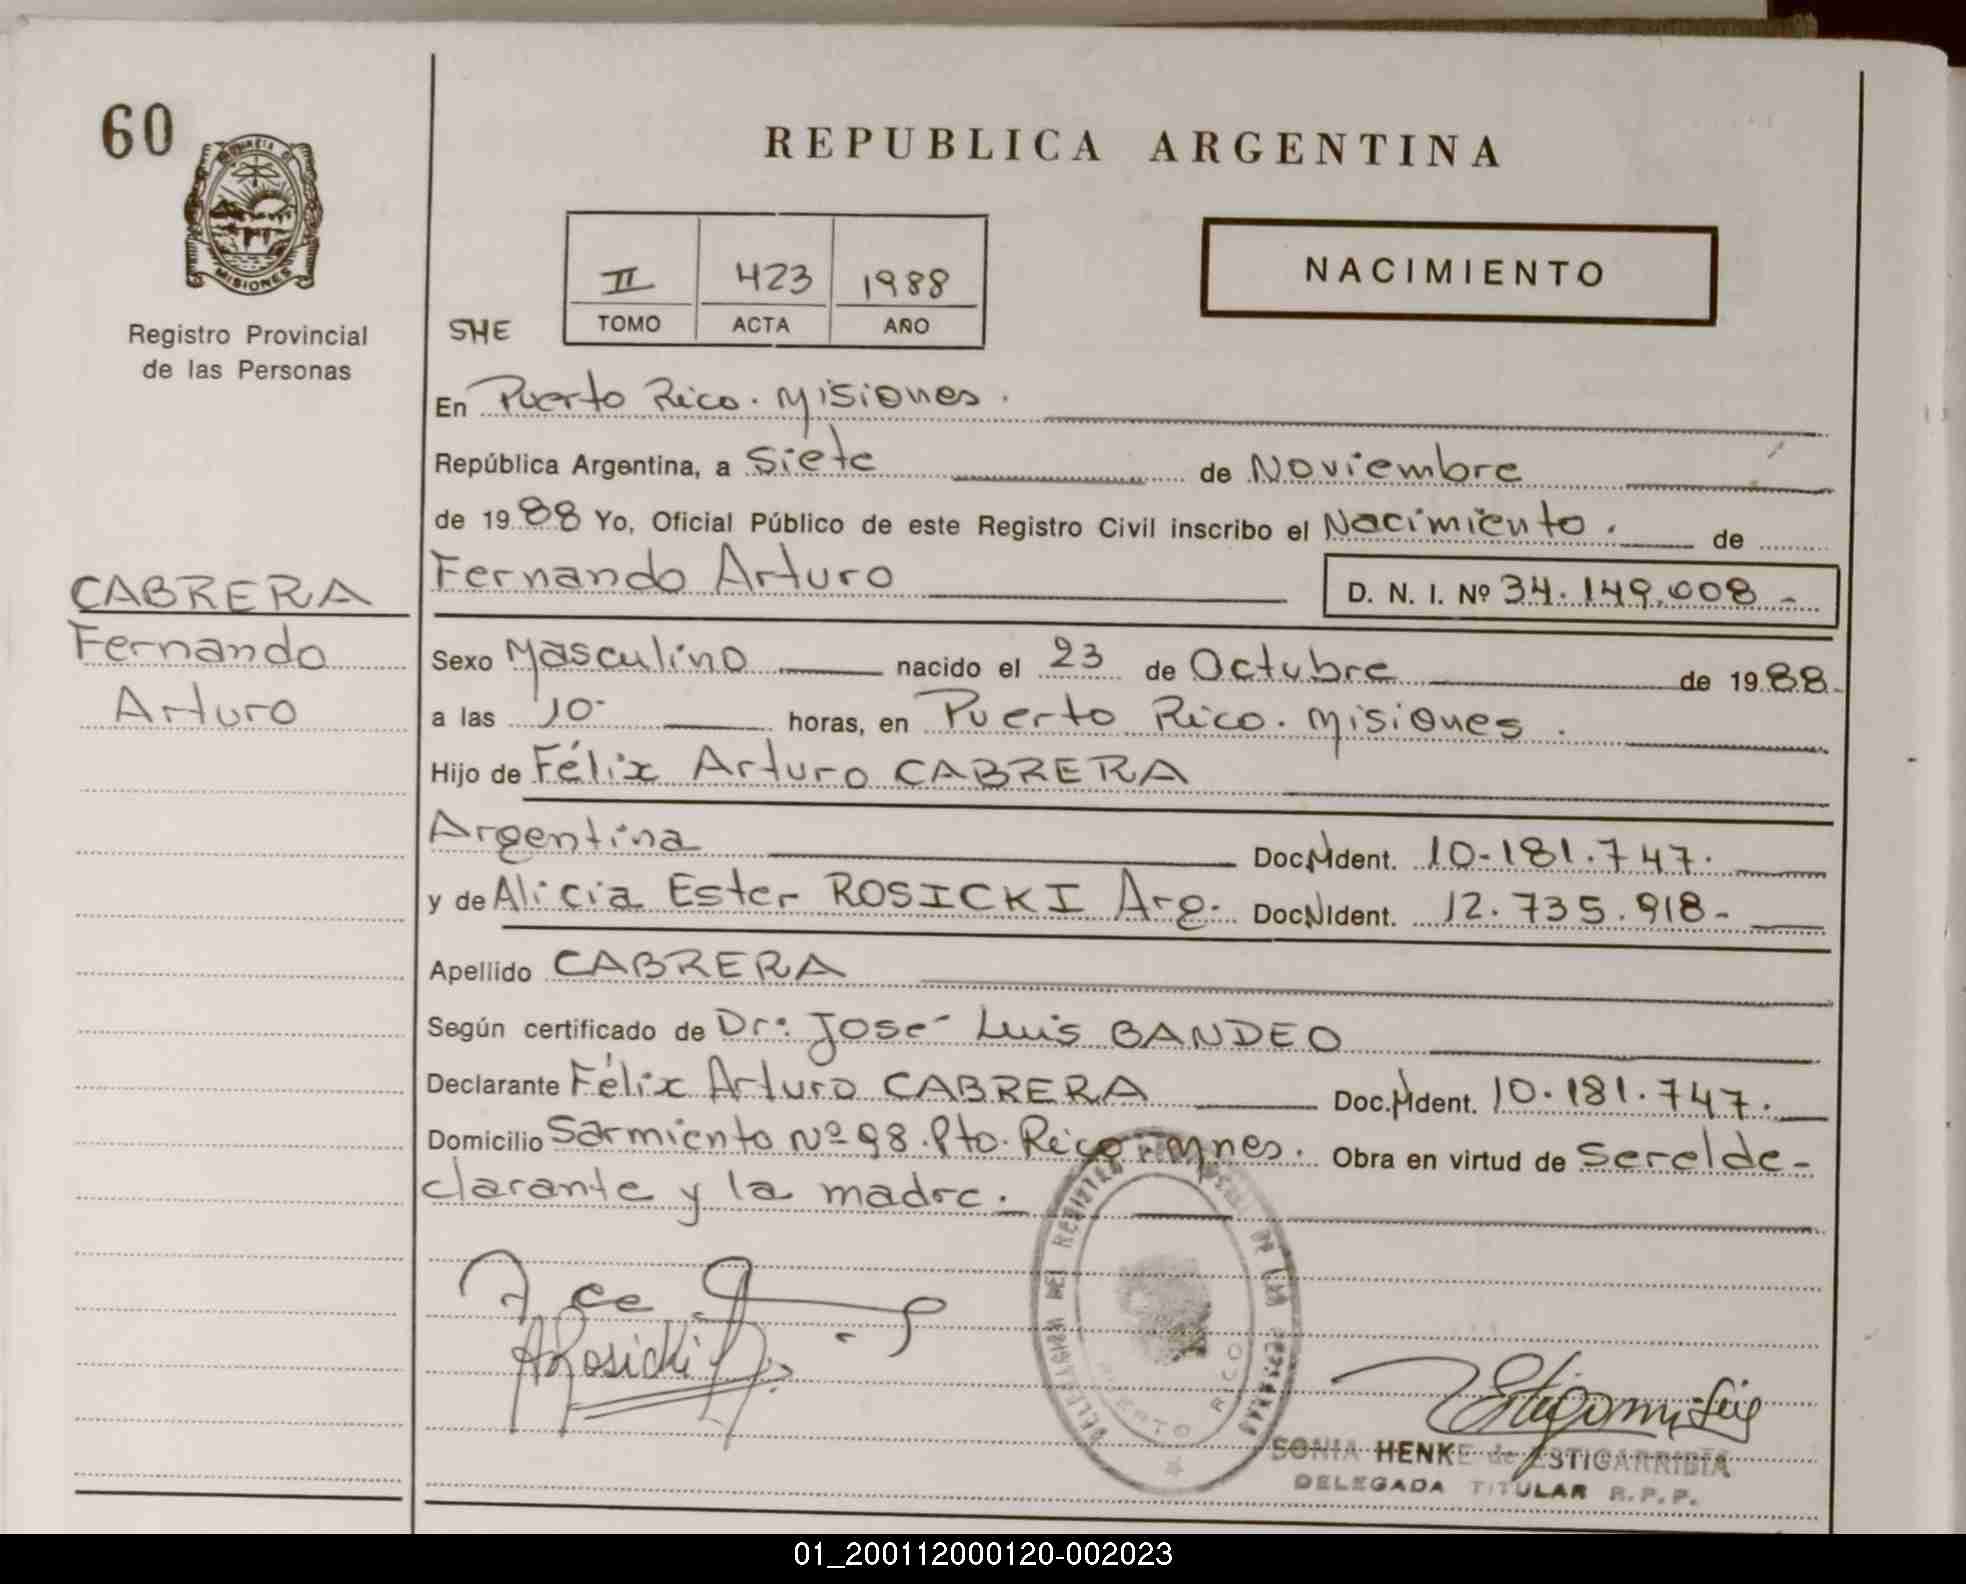 60
PROVINCIA DE
MISIONES
Registro Provincial
de las Personas
CABRERA
Fernando
Arturo
REPUBLICA ARGENTINA
II 423 1988
TOMO ACTA AÑO
NACIMIENTO
SHE
En Puerto Rico. Misiones.
República Argentina, a siete de Noviembre
de 1988 Yo, Oficial Público de este Registro Civil inscribo el Nacimiento. de
Fernando Arturo D. N. I. Nº 34.149.008-
Sexo Masculino nacido el 23 de Octubre de 1988.
a las 10- horas, en Puerto Rico. Misiones.
Hijo de Félix Arturo CABRERA
Argentina Doc. Ident. 10-181.747.
y de Alicia Ester ROSICKI Arg. Doc. Ident. 12.735.918-
Apellido CABRERA
Según certificado de Dr: José Luis BANDEO
Declarante Félix Arturo CABRERA Doc. Ident. 10.181.747.
Domicilio Sarmiento Nº 98. Pto. Rico-Mnes. Obra en virtud de Ser el de-
clarante y la madre.
DELEGACION DEL REGISTRO PROVINCIAL DE LAS PERSONAS
PUERTO RICO
ARosicki
SONIA HENKE de ESTIGARRIBIA
DELEGADA TITULAR R.P.P.
01_200112000120-002023